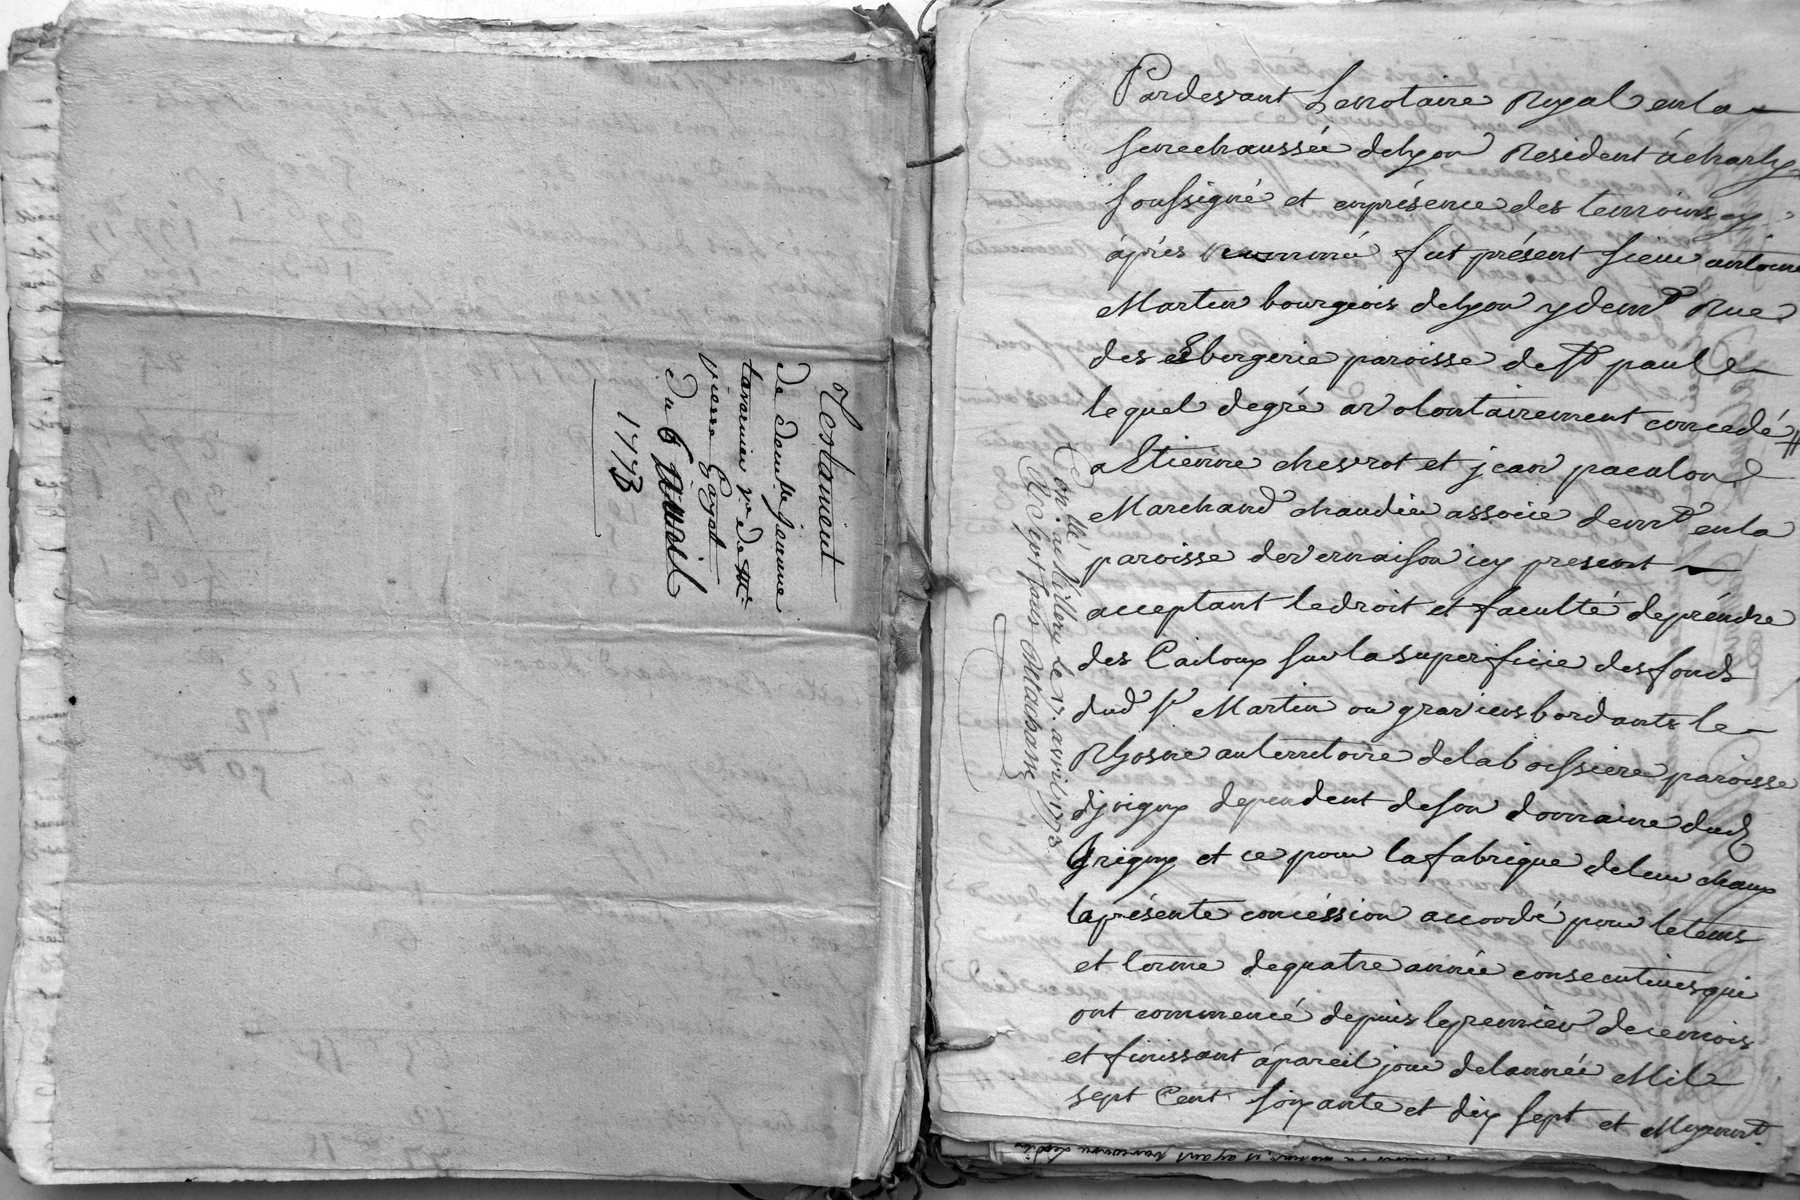 Testament
De demlle jeanne
tavernier ve de Mr
pierre Gayet
Du 6 Avril
1773
Pardevant Le notaire Royal en la
senechaussée de Lyon Resident a charly
soussigné et en présence des temoins cy
àprés nommé fut présent sieur antoine
Martin bourgeois de Lyon y demt Rue
des esbergerie paroisse de st paul
lequel de gré a volontairement concedé
a Etienne chevrot et jean pacalon
Marchand chaudier associe demt en la
paroisse de vernaison icy present
acceptant le droit et faculté de préndre
des Cailoux sur la superficie des fonds
dud sr Martin ou graviers bordants le
Rhosne au territoire de la boissiere paroisse
dependent de son domaine dud
Grigny et ce pour la fabrique de leur chaux
la présente concéssion accordé pour le tems
et terme de quatre année consecutives qui
ont commencé depuis le premier de ce mois
et finissant à pareil jour de lannée Mil
sept Cent soixante et dix sept et Moyent
Conllé a Millery le 17. avril 1773